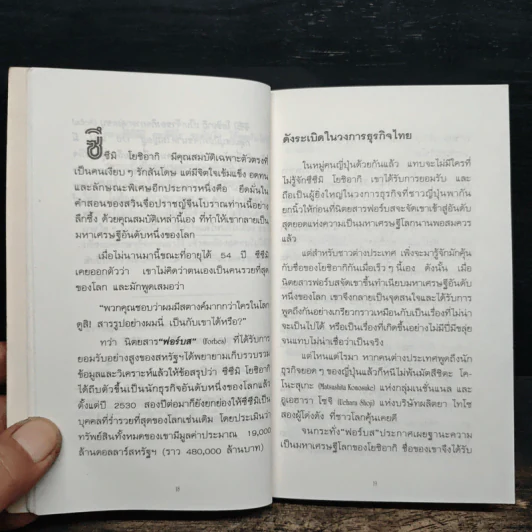 ซึซึมิ โยชิอากิ มีคุณสมบัติเฉพาะตัวตรงที่
เป็นคนเงียบๆ รักสันโดษ แต่มีจิตใจเข้มแข็ง อดทน
และลักษณะพิเศษอีกประการหนึ่งคือ ยึดมั่นใน
คำสอนของสวินจื่อปราชญ์จีนโบราณท่านนี้อย่าง
ลึกซึ้ง ด้วยคุณสมบัติเหล่านี้เอง ที่ทำให้เขากลายเป็น
มหาเศรษฐีอันดับหนึ่งของโลก
เมื่อไม่นานมานี้ขณะที่อายุได้ 54 ปี ซึซึมิ
เคยออกตัวว่า เขาไม่คิดว่าตนเองเป็นคนรวยที่สุด
ของโลก และมักพูดเสมอว่า
"พวกคุณชอบว่าผมมีสตางค์มากกว่าใครในโลก
ดูสิ! สารรูปอย่างผมนี่ เป็นกับเขาได้หรือ?"
ทว่า นิตยสาร"ฟอร์บส" (Forbes) ที่ได้รับการ
ยอมรับอย่างสูงของสหรัฐฯ ได้พยายามเก็บรวบรวม
ข้อมูลและวิเคราะห์แล้วให้ข้อสรุปว่า ซึซึมิ โยชิอากิ
ได้ถีบตัวขึ้นเป็นนักธุรกิจอันดับหนึ่งของโลกแล้ว
ตั้งแต่ปี 2530 สองปีต่อมาก็ยังยกย่องให้ซึซึมิเป็น
บุคคลที่ร่ำรวยที่สุดของโลกเช่นเดิม โดยประเมินว่า
ทรัพย์สินทั้งหมดของเขามีมูลค่าประมาณ 19,000
ล้านดอลลาร์สหรัฐฯ (ราว 480,000 ล้านบาท)
ดังระเบิดในวงการธุรกิจไทย
ในหมู่คนญี่ปุ่นด้วยกันแล้ว แทบจะไม่มีใครที่
ไม่รู้จักซึซึมิ โยชิอากิ เขาได้รับการยอมรับ และ
ถือเป็นผู้ยิ่งใหญ่ในวงการธุรกิจที่ชาวญี่ปุ่นพากัน
ยกนิ้วให้ก่อนที่นิตยสารฟอร์บสจะจัดเขาเข้าสู่อันดับ
สุดยอดแห่งความเป็นมหาเศรษฐีโลกนานพอสมควร
แล้ว
แต่สำหรับชาวต่างประเทศ เพิ่งจะมารู้จักมักคุ้น
กับชื่อของโยชิอากิกันเมื่อเร็วๆ นี้เอง ดังนั้น เมื่อ
นิตยสารฟอร์บสจัดเขาขึ้นทำเนียบมหาเศรษฐีอันดับ
หนึ่งของโลก เขาจึงกลายเป็นจุดสนใจและได้รับการ
พูดถึงกันอย่างเกรียวกราวเหมือนกับเป็นเรื่องที่ไม่น่า
จะเป็นไปได้ หรือเป็นเรื่องที่เกิดขึ้นอย่างไม่มีปี่มีขลุ่ย
จนแทบไม่น่าเชื่อว่าเป็นจริง
แต่ไหนแต่ไรมา หากคนต่างประเทศพูดถึงนัก
ธุรกิจยอดๆ ของญี่ปุ่นแล้วก็หนีไม่พ้นมัตสึชิตะ โค-
โนะสุเกะ (Matsushita Konosuke) แห่งกลุ่มเนชั่นแนล และ
อูเอฮารา โชจิ (Uehara Shoji) แห่งบริษัทผลิตยา ไทโช
สองผู้โด่งดัง ที่ชาวโลกคุ้นเคยดี
จนกระทั่ง"ฟอร์บส"ประกาศเผยฐานะความ
เป็นมหาเศรษฐีโลกของโยชิอากิ ชื่อของเขาจึงได้รับ